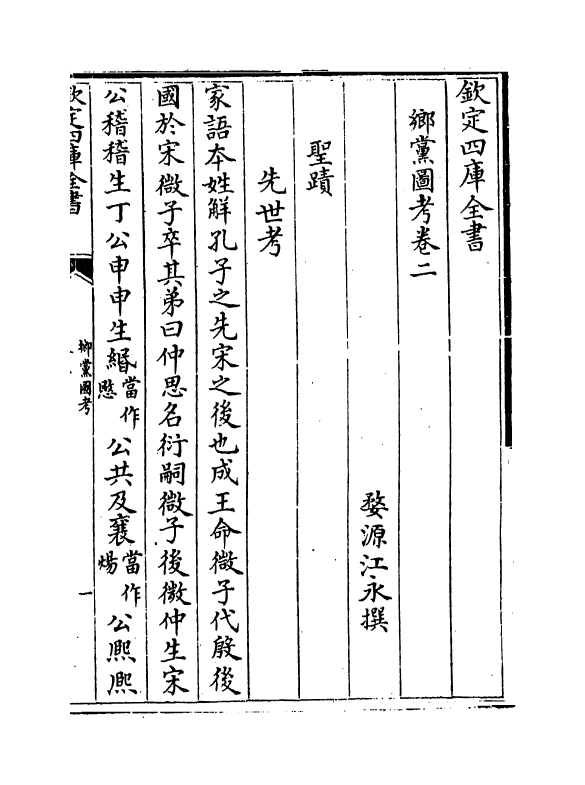 欽定四庫全書
鄉黨圖考卷二
婺源江永撰
聖蹟
先世考
家語本姓解孔子之先宋之後也成王命微子代殷後
國於宋微子卒其弟曰仲思名衍嗣微子後微仲生宋
公稽稽生丁公申申生緡當作愍公共及襄當作煬公熙熙
欽定四庫全書
鄉黨圖考
一